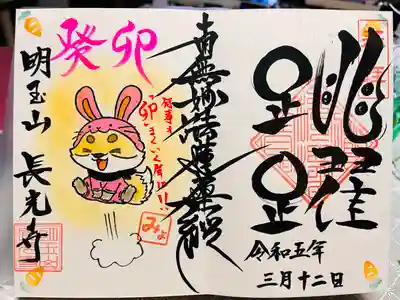 跳躍
令和五年
三月十二日
南無妙法蓮華経
「卯」まくいく年に!!
癸卯
明玉山 長光寺